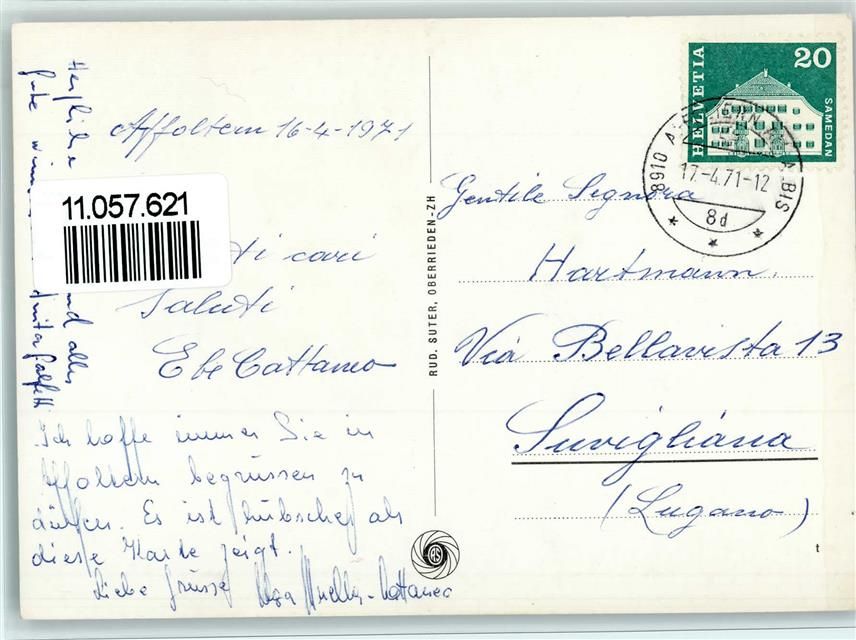 Affoltern 16-4-1971
ti cari
Saluti
Ebe Cattaneo
Ich hoffe immer Sie in
Affoltern begrüssen zu
dürfen. Es ist hübscher als
diese Karte zeigt.
Liebe Grüsse Müller-Cattaneo
Herzliche und alles
gute Anita
11.057.621
RUD. SUTER, OBERRIEDEN-ZH
RS
HELVETIA
20
SAMEDAN
8910 AFFOLTERN A. ALBIS
17.-4.71-12
8d
Gentile Signora
Hartmann.
Via Bellavista 13
Suvigliana
(Lugano)
t